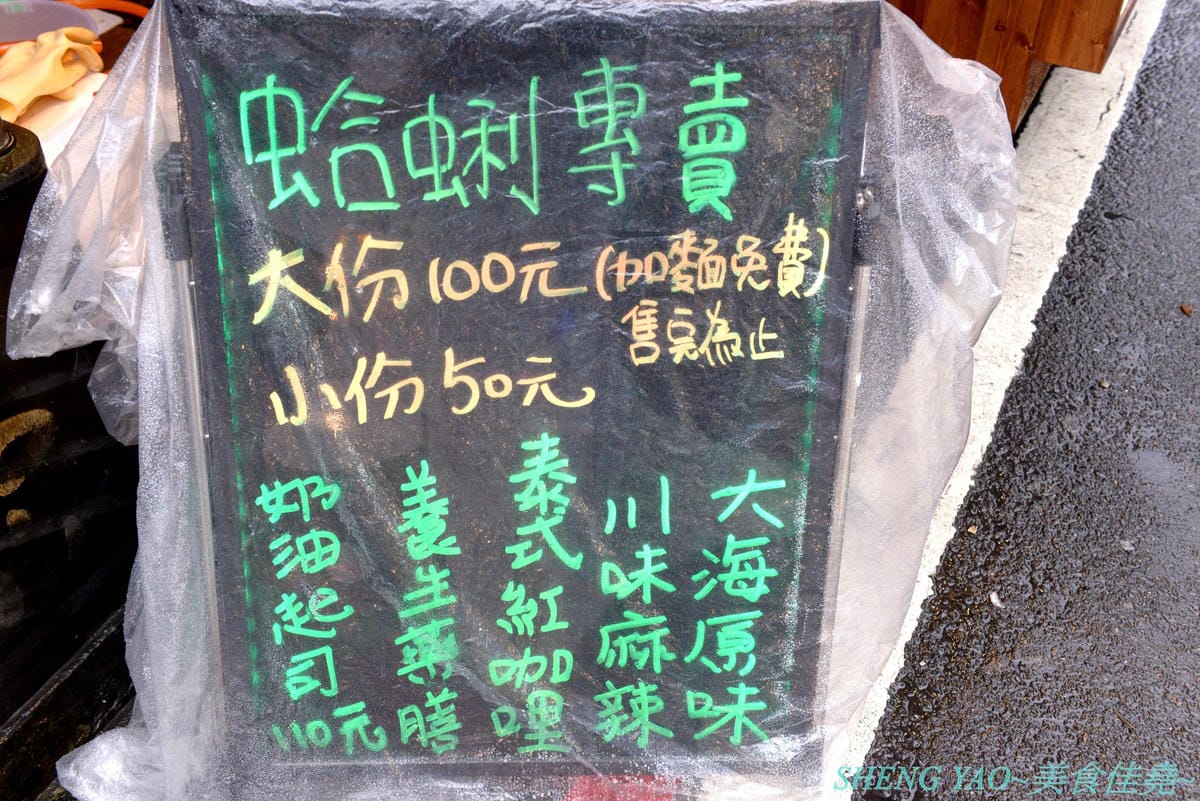 蛤蜊專賣
大份100元(加麵免費)
售完為止
小份50元
大海原味
川味麻辣
泰式紅咖哩
養生藥膳
奶油起司110元
SHENG YAO~美食佳堯~